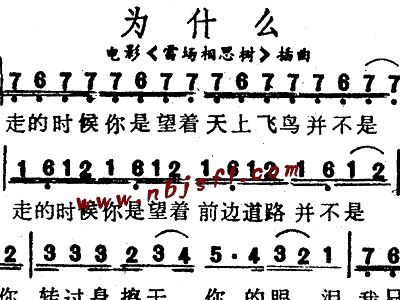 为什么
电影《雷场相思树》插曲
7 6 7 7 7 6 7 7 7 6 7 7 7 6 7 7
走的时候你是望着天上飞鸟并不是
1 6 1 2 1 6 1 2 1 6 1 2 1 6 1 2
www.nbjsfl.com
走的时候你是望着前边道路并不是
2 3 3 3 2 3 4 5 · 4 3 2 1 7 6
你 转过身擦干 你的眼泪我只